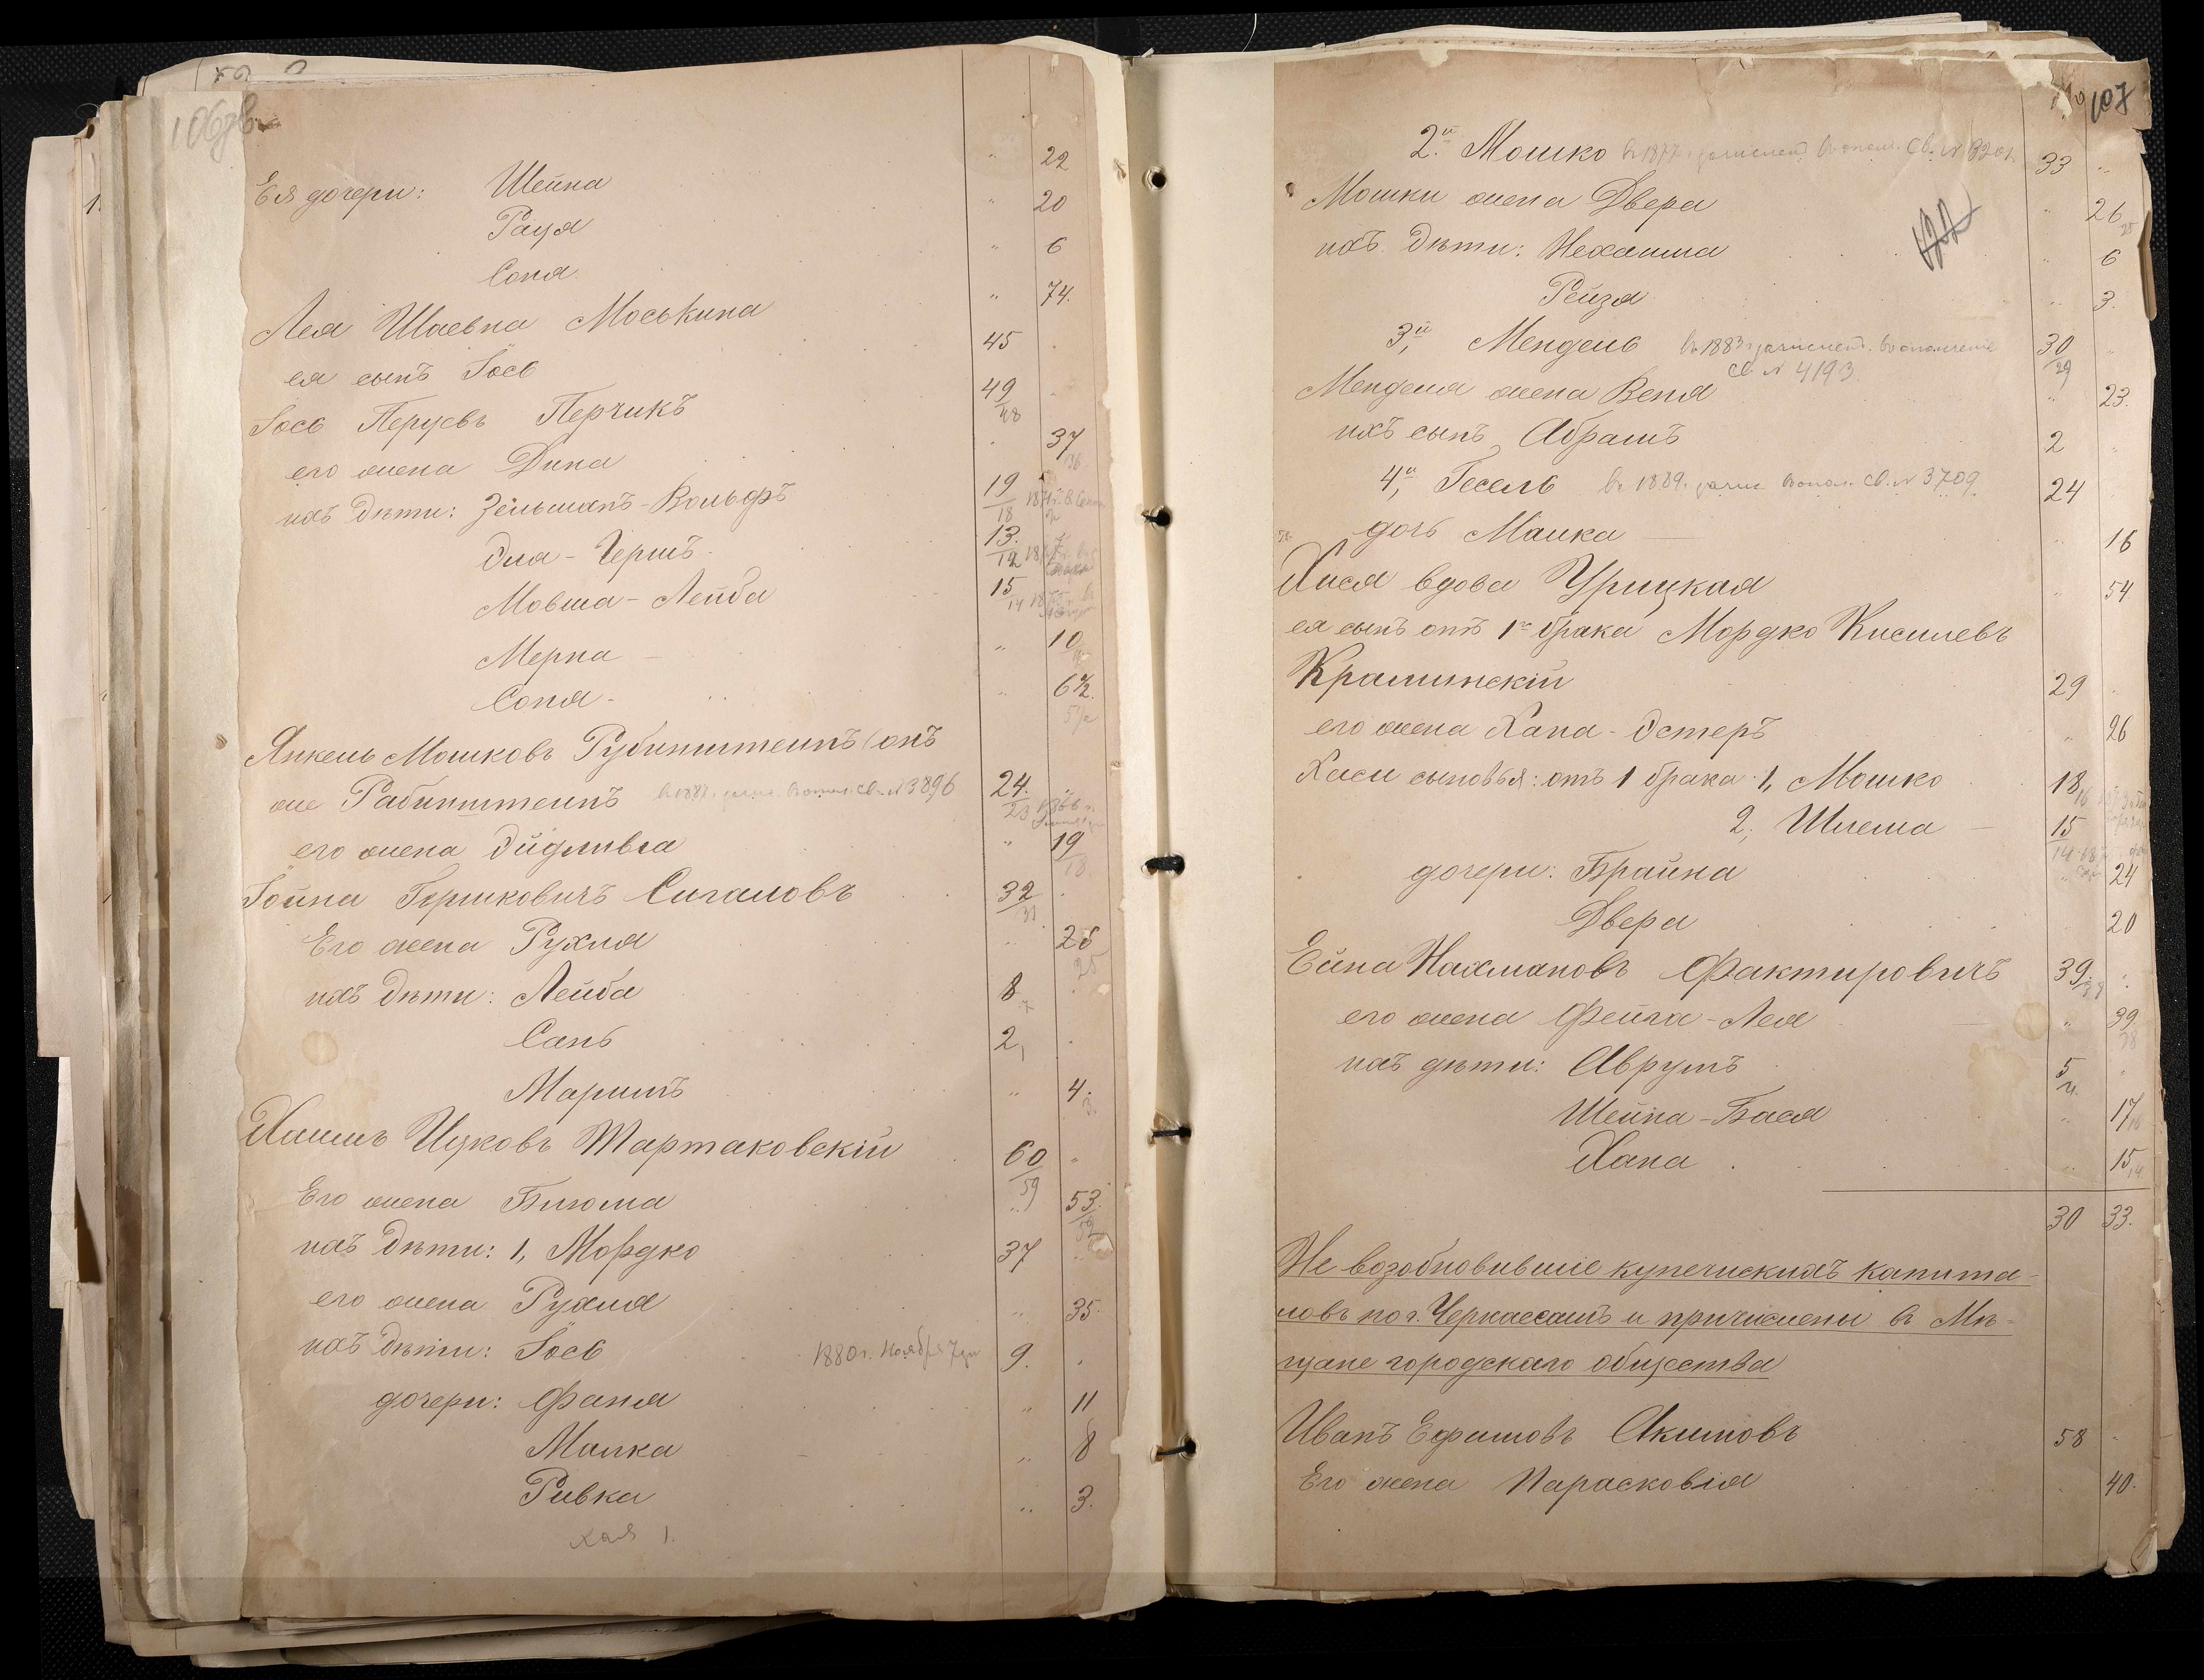 106 об
Ея дочери: Шейна " 22
Рауя " 20
Соня " 6
Лея Шаевна Моськина " 74.
ея сынъ Іось 45
Іось Перцевъ Перчикъ 49/48
его жена Дина 37/36
ихъ дѣти: Зельманъ-Вольфъ 19/18
Эля-Гершъ 13/12
Мовша-Лейба 15/14
Мерка " 10
Соня " 6 1/2 5 1/2
Янкель Мошковъ Рубинштейнъ (онъ
же Рабинштейнъ св. № 3896 24/23
его жена Эйдливга " 19/18
Іойна Гершковичъ Сигаловъ 32/31
Его жена Рухля " 26 25
ихъ дѣти: Лейба 8 7
Сань 2 1
Маримъ " 4. 3.
Хаимъ Ицковъ Тартаковскій 60/59 "
Его жена Блюма " 53/52
ихъ дѣти: 1, Мордко 37 "
его жена Рухля " 35.
ихъ дѣти: Іось 1880 г. Ноября 7 дн 9.
дочери: Фаня " 11
Малка " 8
Ривка " 3.
Хая 1.
107
2й Мошко в 1877 г. зачислен в ополч. Св. № 3201. 33 "
Мошки жена Двера " 26 25
ихъ дѣти: Нехамма " 6
Рейзя " 3.
3й, Мендель в 1883 г. зачислен. в ополчение 30/29 "
Св. № 4193
Менделя жена Веня " 23.
ихъ сынъ Абрамъ 2 "
4й, Гесель в 1889. зачис в опол. св. № 3709 24
дочь Малка " 16
Хася вдова Урицкая " 54
ея сынъ отъ 1го брака Мордко Кисилевъ
Краминскій 29 "
его жена Хана-Эстеръ " 26
Хаси сыновья: отъ 1 брака 1, Мошко 18/16
2, Шлема 15/14
дочери: Брайна " 24
Двера 20
Ейна Нахмановъ Фактировичъ 39/38
его жена Фейга-Лея " 39/38
ихъ дѣти: Аврумъ 5/4. "
Шейна-Бася " 17/16
Хана " 15/14
30 33.
Не возобновившіе купеческихъ капита-
ловъ по г. Черкассамъ и причислены в Мѣ-
щане городскаго общества
Иванъ Ефимовъ Акимовъ 58 "
Его жена Парасковія 40.